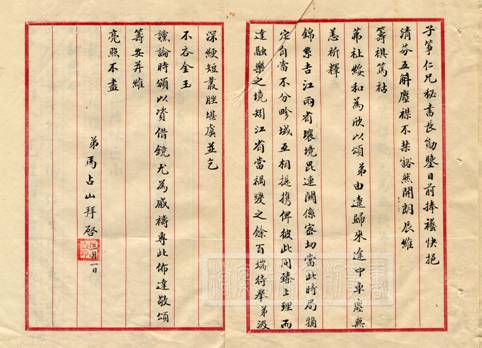 子箏仁兄秘書長勛鑒日前捧襼快挹
清芬五斛塵襟不禁豁然開朗辰維
籌祺篤祜
萊祉綏和為欣以頌弟由遼歸來途中車塵無
恙祈釋
錦系吉江兩省壤境毘連關係密切當此時局猶
定自當不分畛域互相提携俾彼此同臻上理而
達融樂之境矧江省當禍變之餘百端待舉弟汲
深綆短叢脞堪虞並乞
不吝金玉
讜論時頒以資借鏡尤為感禱專此佈達敬頌
籌安并維
亮照不盡
弟馬占山拜啓
三月一日